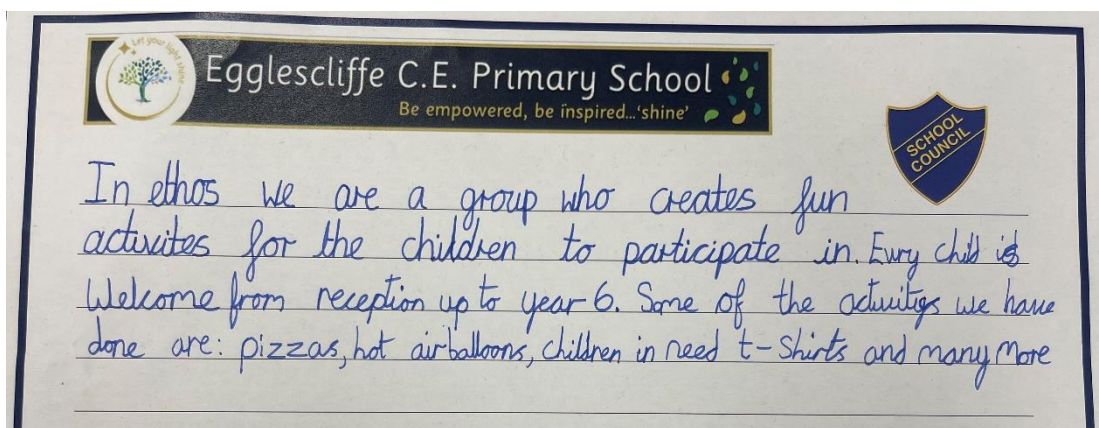 Let your light shine
Egglescliffe C.E. Primary School
Be empowered, be inspired...'shine'
SCHOOL
COUNCIL
In ethos we are a group who creates fun
activites for the children to participate in. Evry child is
Welcome from reception up to year 6. Some of the activities we have
done are: pizzas, hot airballoons, children in need t-shirts and many More